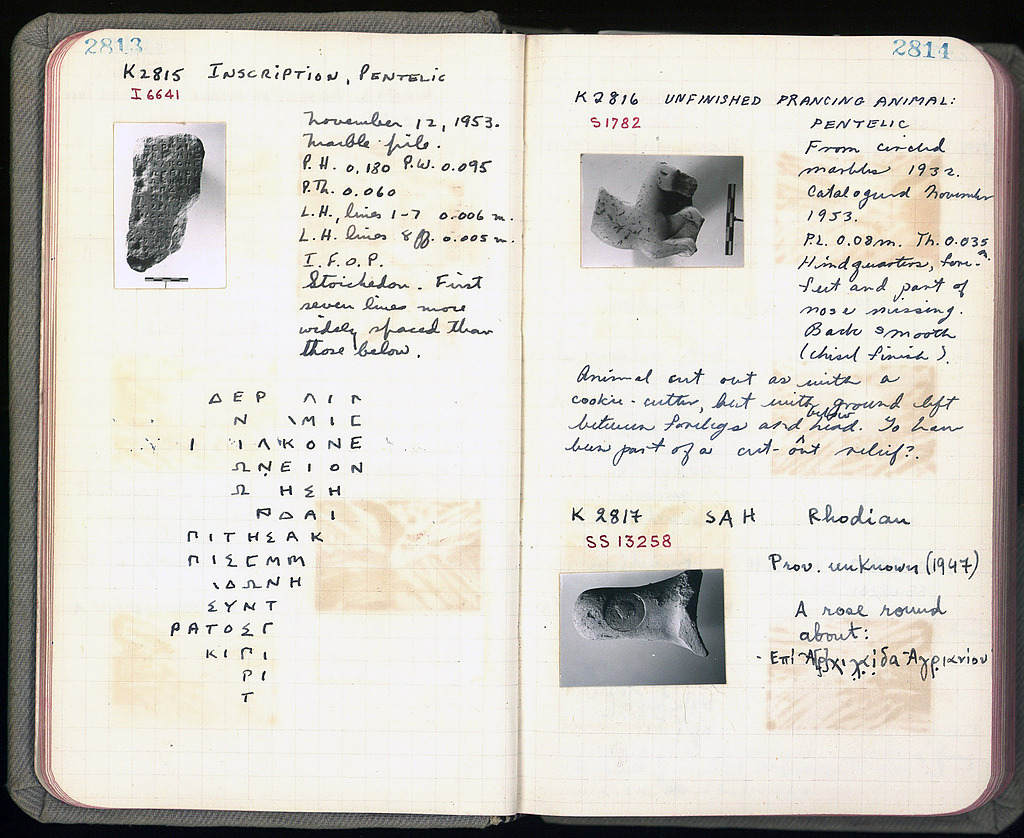 2813
K 2815 INSCRIPTION, PENTELIC
I 6641
November 12, 1953.
Marble pile.
P.H. 0.180 P.W. 0.095
P.Th. 0.060
L.H., lines 1-7 0.006 m.
L.H. lines 8 ff. 0.005 m.
I.F.O.P.
Stoichedon. First
seven lines more
widely spaced than
those below.
ΔΕΡ ΛΙΓ
Ν ΙΜΙΣ
Ι ΙΛΚΟΝΕ
ΩΝΕΙΟΝ
Ω ΗΣΗ
ΔΑΙ
ΠΙΤΗΣΑΚ
ΠΙΣΓΜΜ
ΙΔΩΝΗ
ΣΥΝΤ
ΡΑΤΟΣΓ
ΚΙΠΙ
ΡΙ
Τ
2814
K 2816 UNFINISHED PRANCING ANIMAL:
S 1782
PENTELIC
From circled
marbles 1932.
Catalogued November
1953.
P.L. 0.08 m. Th. 0.035 m.
Hindquarters, fore-
feet and part of
nose missing.
Back smooth
(chisel finish).
Animal cut out as with a
cookie-cutter, but with ground left
between forelegs and below head. To have
been part of a cut-out relief?
K 2817 SAH Rhodian
SS 13258
Prov. unknown (1947)
A rose round
about:
Ἐπὶ Ἀρχιλαίδα Ἀγριανίου